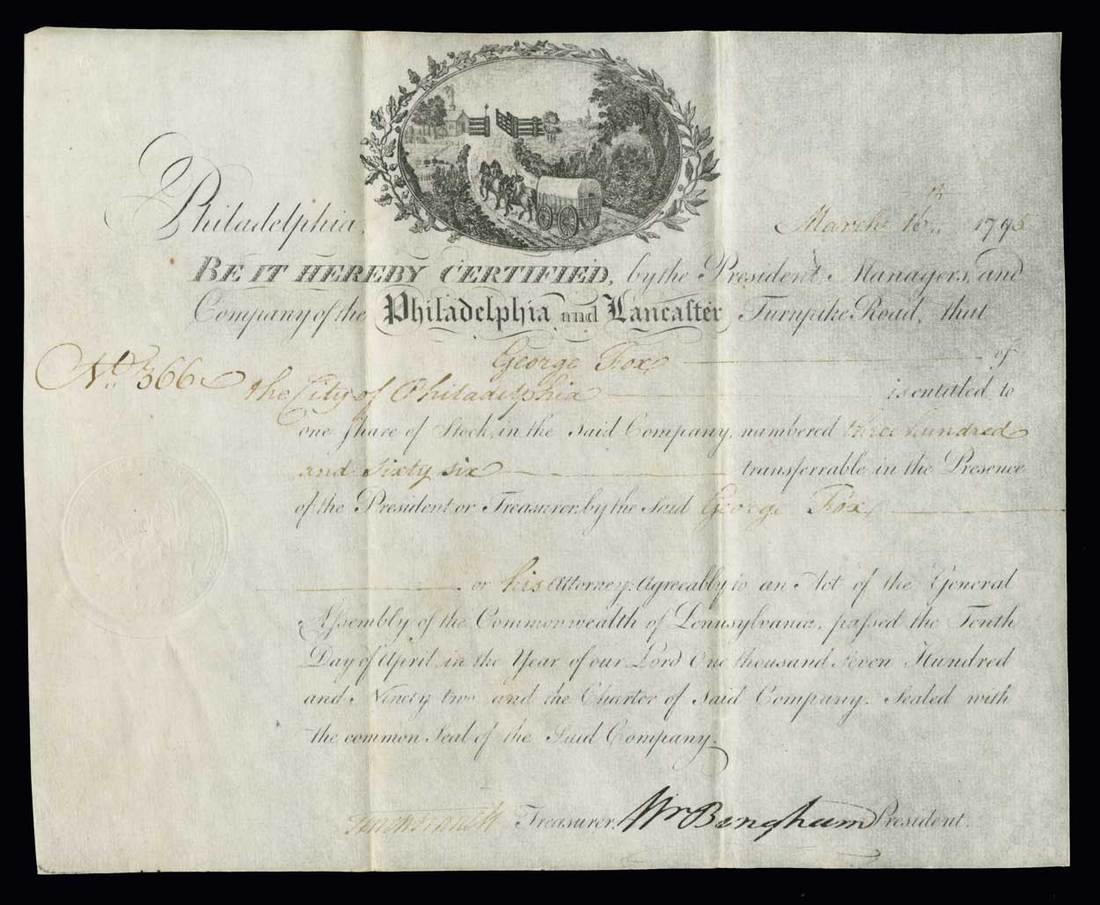 Philadelphia, March 16th 1795
BE IT HEREBY CERTIFIED, by the President, Managers, and
Company of the Philadelphia and Lancaster Turnpike Road, that
George Fox of
No. 366 the City of Philadelphia is entitled to
one Share of Stock, in the Said Company, numbered three hundred
and Sixty six transferrable in the Presence
of the President or Treasurer, by the Said George Fox
or his Attorney, Agreeably to an Act of the General
Assembly of the Commonwealth of Pennsylvania, passed the Tenth
Day of April, in the Year of our Lord One thousand Seven Hundred
and Ninety two and the Charter of Said Company. Sealed with
the common Seal of the Said Company.
Treasurer. Wm Bingham President.